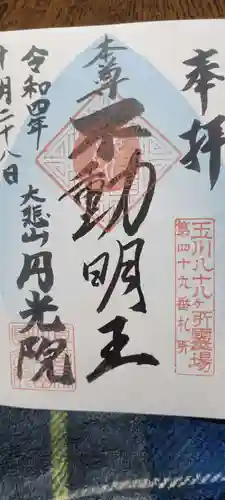 奉拝
玉川八十八ヶ所霊場
第四十九番札所
本尊
不動明王
大悲山 円光院
令和四年
十月二十八日